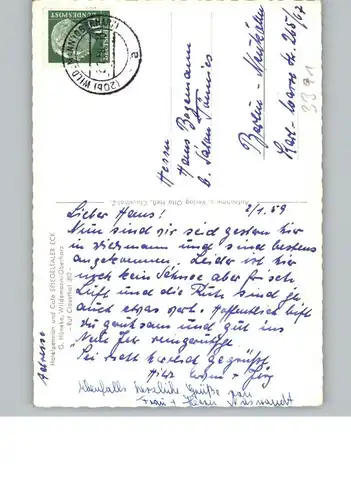 BUNDESPOST
(20b) WILDEMANN (OBERHARZ)
a
Herrn
Hans Bogemann
b. Salon Pönnies
Berlin-Neukölln
Karl-Marx Str. 265/67
3391
Aufnahme u. Verlag Otto Heß, Clausthal-Z.
Hotelpension und Café SPIEGELTALER ECK
Wildemann/Oberharz
Adresse
2/1.59
Lieber Hans!
Nun sind wir seid gestern hier
in Wildemann und sind bestens
angekommen. Leider ist hier
noch kein Schnee aber frisch
Luft und die Ruhe sind ja
auch etwas wert. Hoffentlich bist
du gut ins
Neue Jahr reingerutscht
Sei recht herzlich gegrüßt
+ Jörg
Ebenfalls herzliche Grüße von
Frau + Herrn